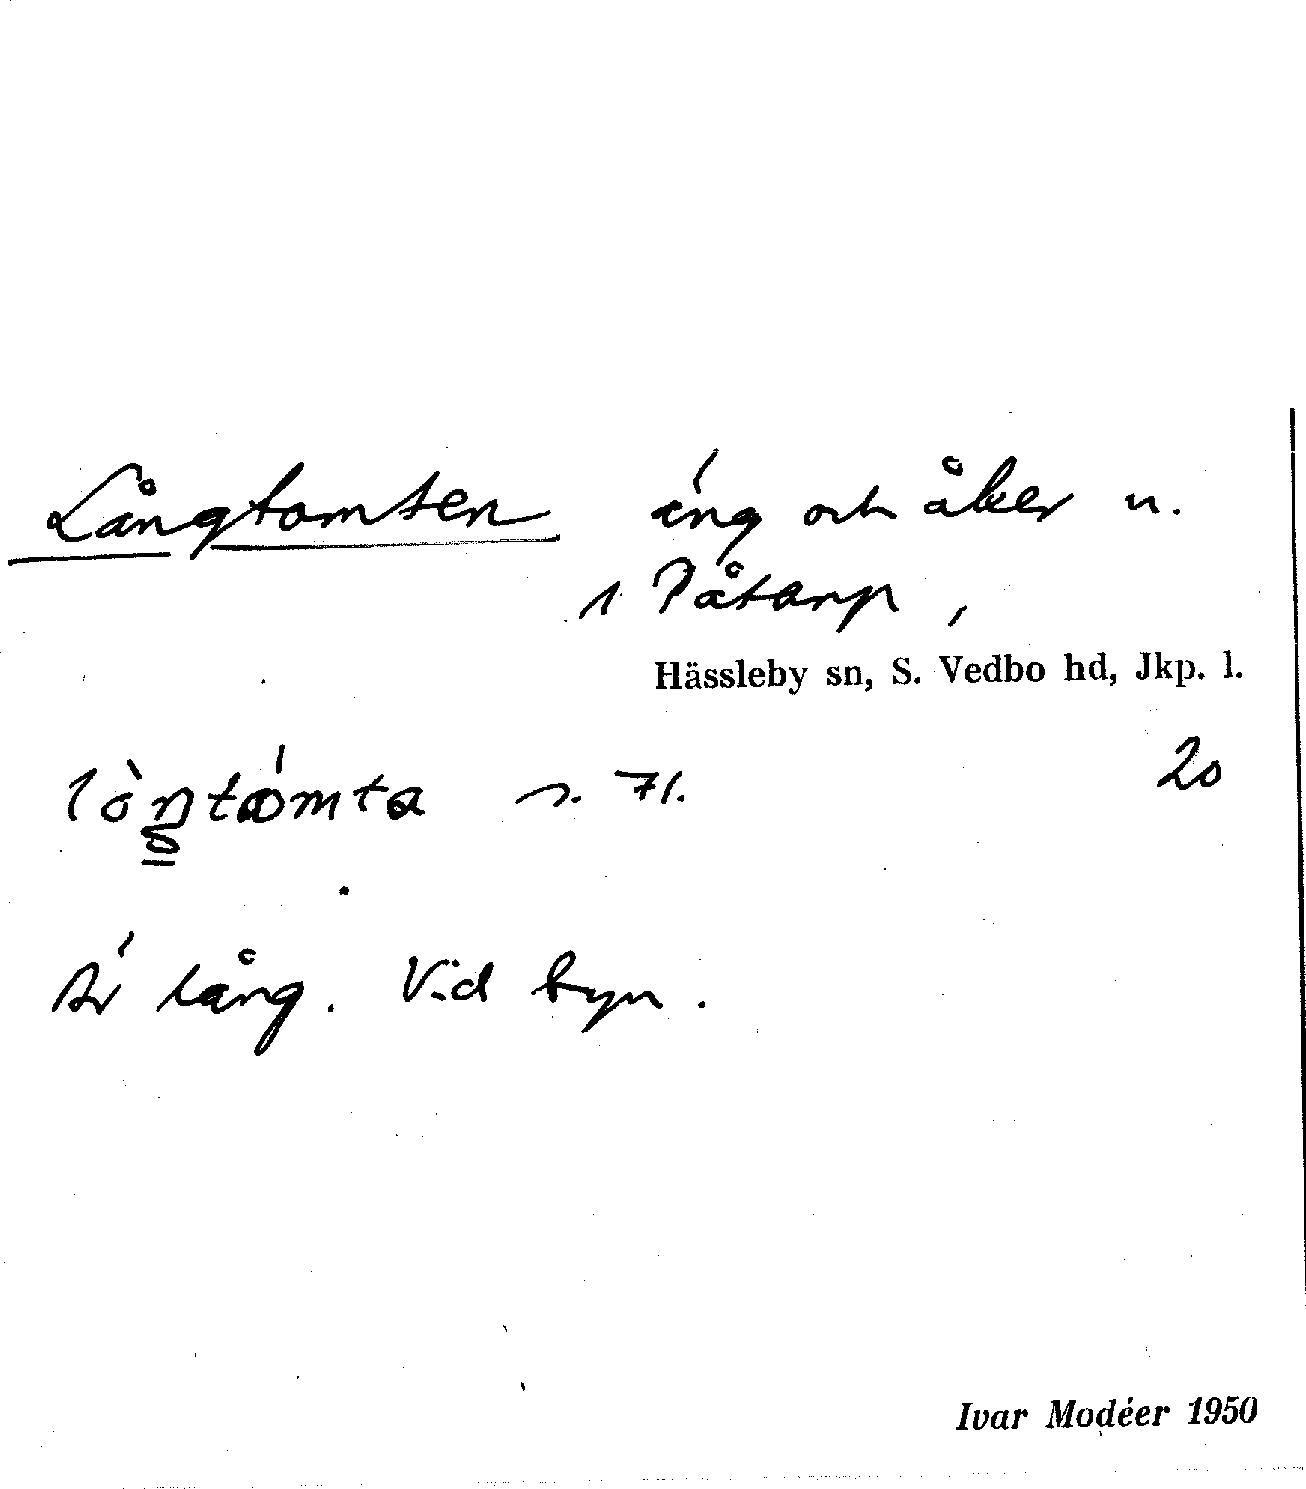 Långtomten äng och åker n.
1 Påtarp,
Hässleby sn, S. Vedbo hd, Jkp. l.
lòŋtómta s. 71. 20
Är lång. Vid byn.
Ivar Modéer 1950